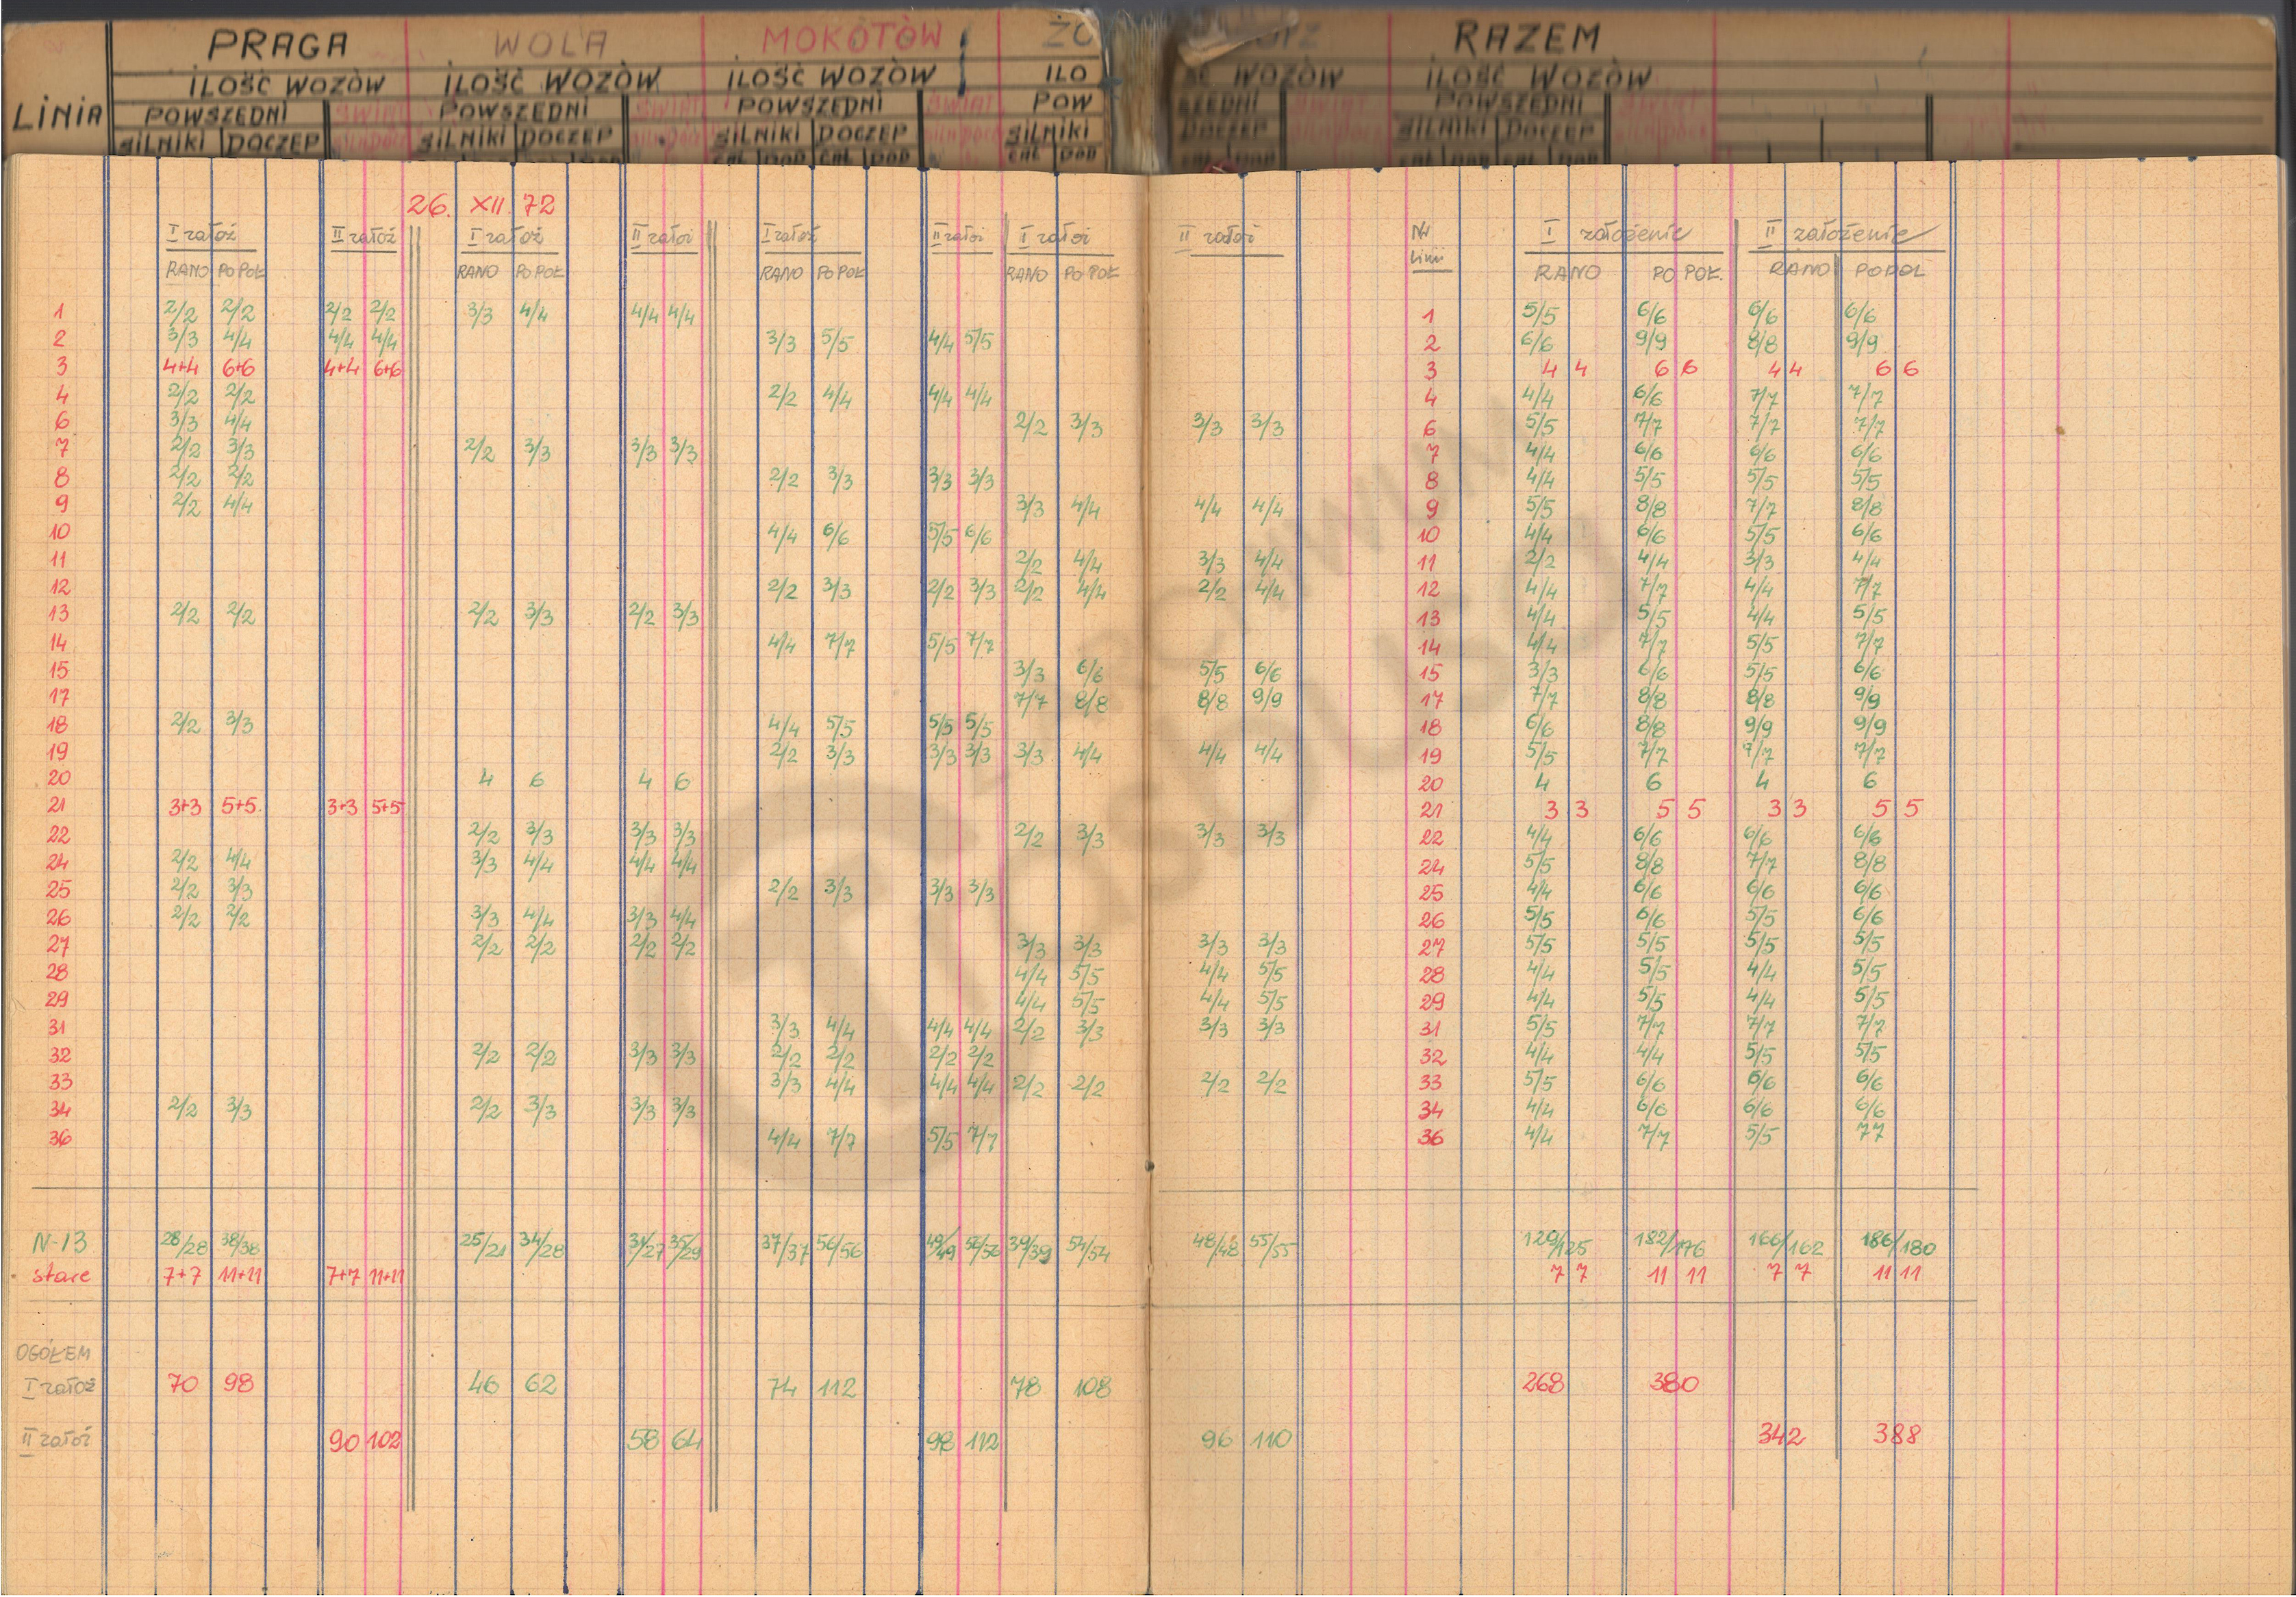 PRAGA WOLA MOKOTÓW ŻO RZ RAZEM
ILOŚĆ WOZÓW ILOŚĆ WOZÓW ILOŚĆ WOZÓW ILO ŚĆ WOZÓW ILOŚĆ WOZÓW
LINIA POWSZEDNI ŚWIĄT POWSZEDNI ŚWIĄT POWSZEDNI ŚWIĄT POW SZEDNI POWSZEDNI
SILNIKI DOCZEP SILNIKI DOCZEP SILNIKI DOCZEP SILNIKI DOCZEP SILNIKI DOCZEP
26. XII. 72
I założ II założ I założ II założ I założ II założ I założ II założ Nr linii I założenie II założenie
RANO PO POŁ RANO PO POŁ RANO PO POŁ RANO PO POŁ RANO PO POŁ. RANO POPOŁ
1 2/2 2/2 2/2 2/2 3/3 4/4 4/4 4/4 1 5/5 6/6 6/6 6/6
2 3/3 4/4 4/4 4/4 3/3 5/5 4/4 5/5 2 6/6 9/9 8/8 9/9
3 4+4 6+6 4+4 6+6 3 4 4 6 6 4 4 6 6
4 2/2 2/2 2/2 4/4 4/4 4/4 4 4/4 6/6 7/7 7/7
6 3/3 4/4 2/2 3/3 3/3 3/3 6 5/5 7/7 7/7 7/7
7 2/2 3/3 2/2 3/3 3/3 3/3 7 4/4 6/6 6/6 6/6
8 2/2 2/2 2/2 3/3 3/3 3/3 8 4/4 5/5 5/5 5/5
9 2/2 4/4 3/3 4/4 4/4 4/4 9 5/5 8/8 7/7 8/8
10 4/4 6/6 5/5 6/6 10 4/4 6/6 5/5 6/6
11 2/2 4/4 3/3 4/4 11 2/2 4/4 3/3 4/4
12 2/2 3/3 2/2 3/3 2/2 4/4 2/2 4/4 12 4/4 7/7 4/4 7/7
13 2/2 2/2 2/2 3/3 2/2 3/3 13 4/4 5/5 4/4 5/5
14 4/4 7/7 5/5 7/7 14 4/4 7/7 5/5 7/7
15 3/3 6/6 5/5 6/6 15 3/3 6/6 5/5 6/6
17 7/7 8/8 8/8 9/9 17 7/7 8/8 8/8 9/9
18 2/2 3/3 4/4 5/5 5/5 5/5 18 6/6 8/8 9/9 9/9
19 2/2 3/3 3/3 3/3 3/3 4/4 4/4 4/4 19 5/5 7/7 7/7 7/7
20 4 6 4 6 20 4 6 4 6
21 3+3 5+5 3+3 5+5 21 3 3 5 5 3 3 5 5
22 2/2 3/3 3/3 3/3 2/2 3/3 3/3 3/3 22 4/4 6/6 6/6 6/6
24 2/2 4/4 3/3 4/4 4/4 4/4 24 5/5 8/8 7/7 8/8
25 2/2 3/3 2/2 3/3 3/3 3/3 25 4/4 6/6 6/6 6/6
26 2/2 2/2 3/3 4/4 3/3 4/4 26 5/5 6/6 5/5 6/6
27 2/2 2/2 2/2 2/2 3/3 3/3 3/3 3/3 27 5/5 5/5 5/5 5/5
28 4/4 5/5 4/4 5/5 28 4/4 5/5 4/4 5/5
29 4/4 5/5 4/4 5/5 29 4/4 5/5 4/4 5/5
31 3/3 4/4 4/4 4/4 2/2 3/3 3/3 3/3 31 5/5 7/7 7/7 7/7
32 2/2 2/2 3/3 3/3 2/2 2/2 2/2 2/2 32 4/4 4/4 5/5 5/5
33 3/3 4/4 4/4 4/4 2/2 2/2 2/2 2/2 33 5/5 6/6 6/6 6/6
34 2/2 3/3 2/2 3/3 3/3 3/3 34 4/4 6/6 6/6 6/6
36 4/4 7/7 5/5 7/7 36 4/4 7/7 5/5 77
N-13 28/28 38/38 25/21 34/28 31/27 35/29 37/37 56/56 49/49 56/56 39/39 54/54 48/48 55/55 129/125 182/176 166/162 186/180
stare 7+7 11+11 7+7 11+11 7 7 11 11 7 7 11 11
OGÓŁEM
I założ 70 98 46 62 74 112 78 108 268 380
II założ 90 102 58 64 98 112 96 110 342 388